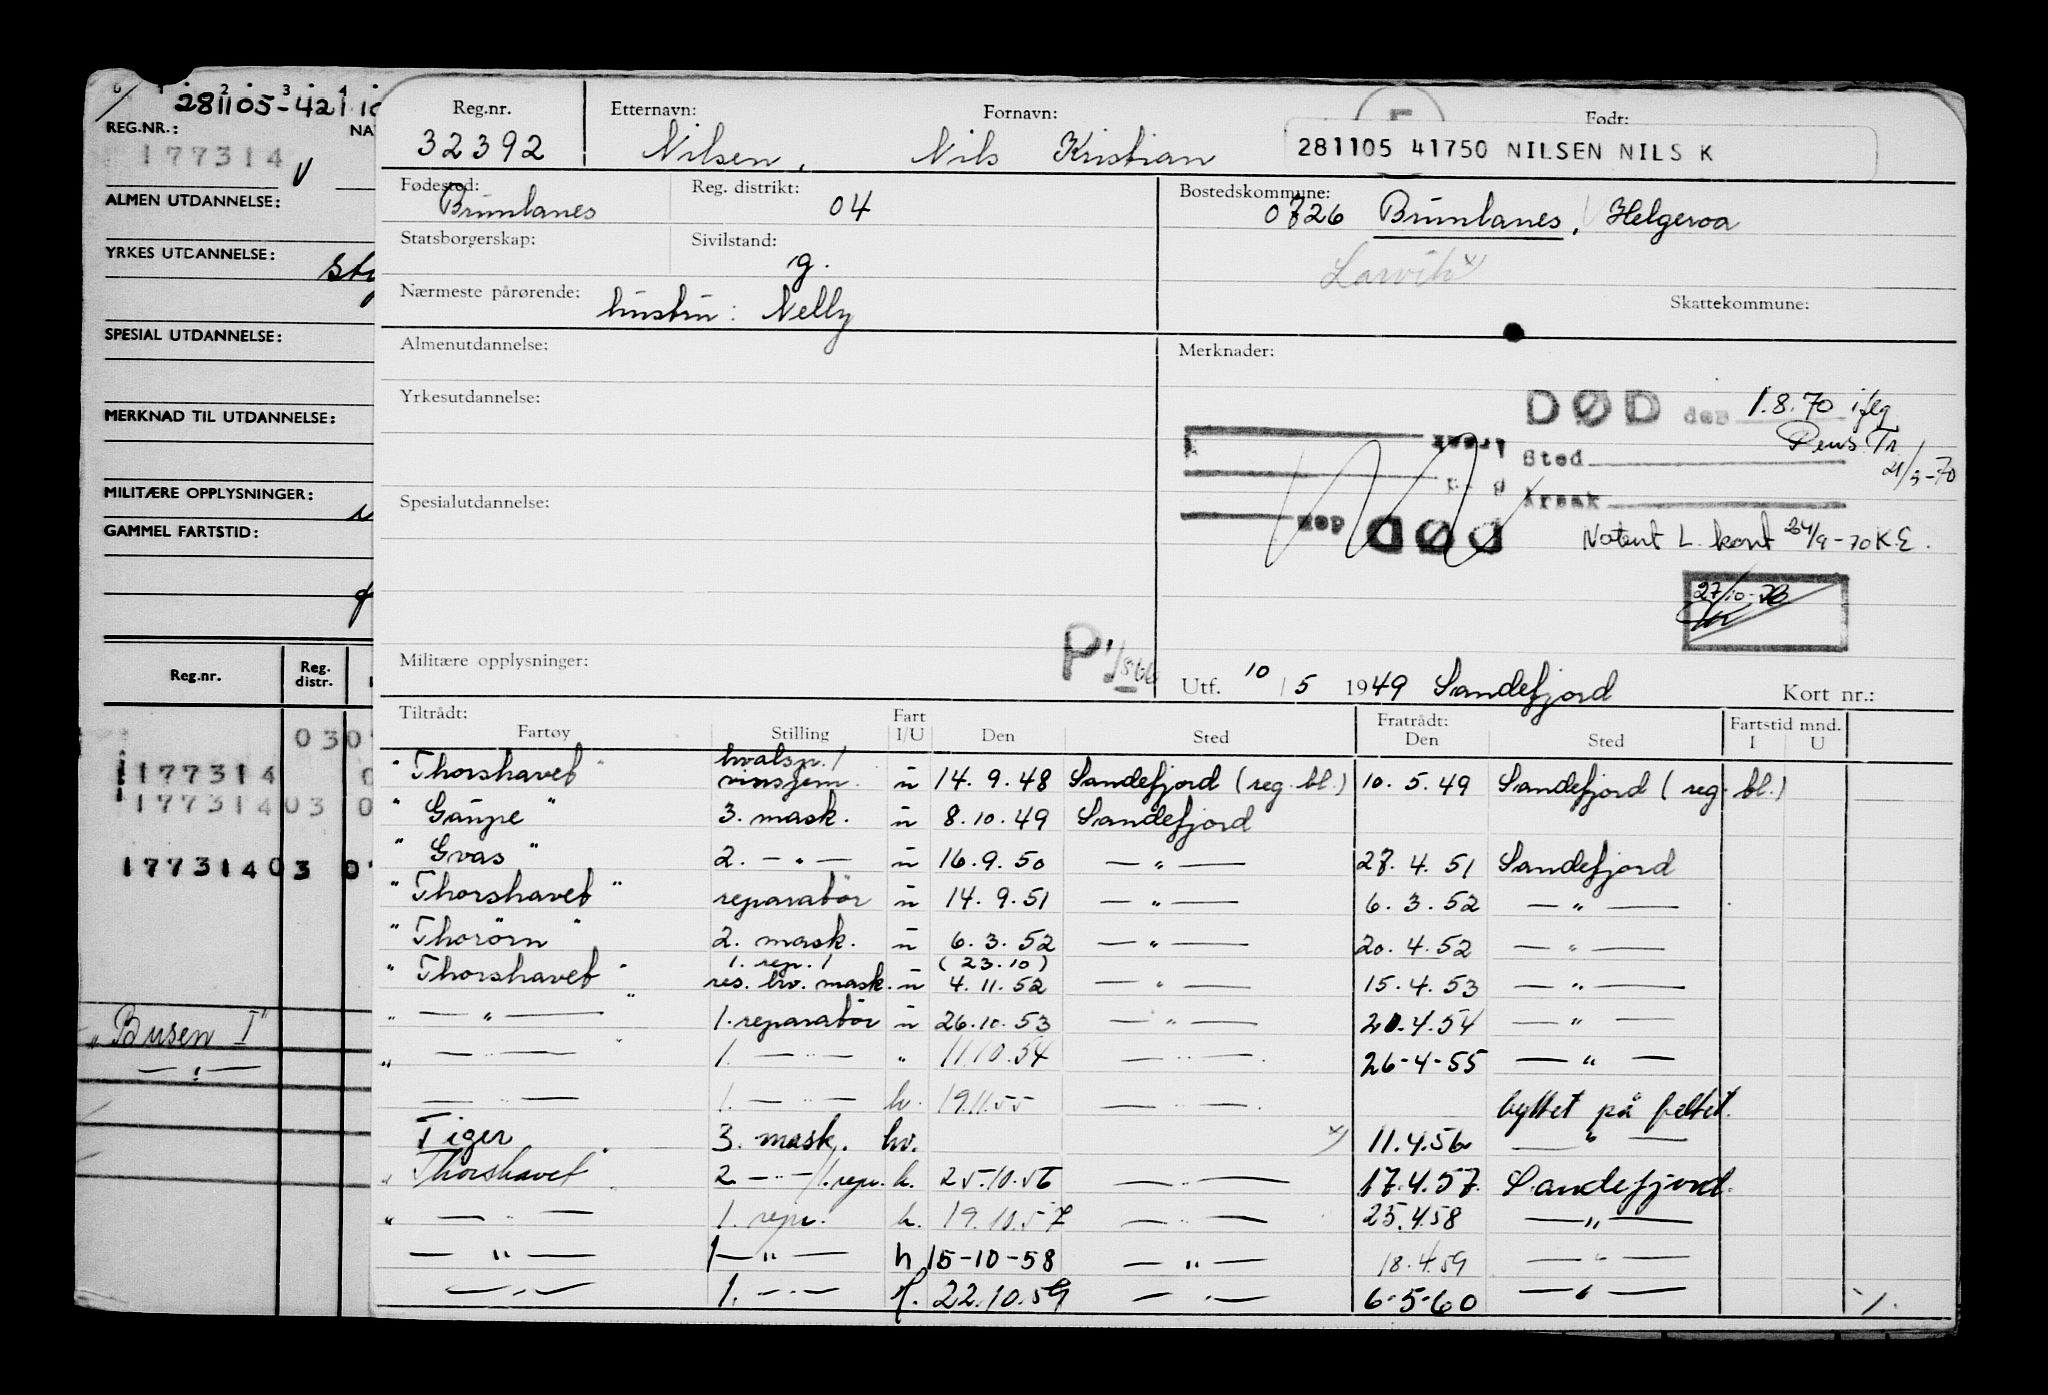 281105-421
REG.NR.:
177314
ALMEN UTDANNELSE:
YRKES UTDANNELSE:
SPESIAL UTDANNELSE:
MERKNAD TIL UTDANNELSE:
MILITÆRE OPPLYSNINGER:
GAMMEL FARTSTID:
Reg.nr. Reg. distr.
030
177314 0
177314 03 0
177314 03 0
"Busen I"
— " —
Reg.nr. Etternavn: Fornavn: Født:
32392 Nilsen, Nils Kristian 281105 41750 NILSEN NILS K
Fødested: Reg. distrikt: Bostedskommune:
Brunlanes 04 0726 Brunlanes, Helgeroa
Statsborgerskap: Sivilstand:
g. Larvik x)
Nærmeste pårørende: Skattekommune:
hustru: Nelly
Almenutdannelse: Merknader:
Yrkesutdannelse:
DØD den 1.8.70 iflg
Pens.Tr.
Sted
21/9-70
Årsak
DØD den
Notert L. kont 24/9-70 K.E.
Spesialutdannelse:
27/10-70
Militære opplysninger: P.
Utf. 10/5 1949 Sandefjord Kort nr.:
Tiltrådt: Fart Fratrådt: Fartstid mnd.
Fartøy Stilling I/U Den Sted Den Sted I U
"Thorshavet" hvalsp./ vinsjem. u 14.9.48 Sandefjord (reg. bl.) 10.5.49 Sandefjord (reg. bl.)
"Gaupe" 3. mask. u 8.10.49 Sandefjord
"Gvas" 2. — " — u 16.9.50 — " — 27.4.51 Sandefjord
"Thorshavet" reparatør u 14.9.51 — " — 6.3.52 — " —
"Thorørn" 2. mask. u 6.3.52 — " — 20.4.52 — " —
"Thorshavet" 1. rep./ res. hv. mask. u (23.10) 4.11.52 — " — 15.4.53 — " —
" — " — " 1. reparatør u 26.10.53 — " — 20.4.54 — " —
" — " — " 1. — " — " 11.10.54 — " — 26-4-55 — " —
— " — 1. — " — hv. 19.11.55 — " — byttet på feltet.
Tiger 3. mask. hv. x) 11.4.56 — " —
"Thorshavet" 2. — " —/1. rep. h. 25.10.56 — " — 17.4.57. Sandefjord.
" — " — 1. rep. h. 19.10.57 — " — 25.4.58 — " —
— " — 1 — " — h 15-10-58 — " — 18.4.59 — " —
— " — 1. — " — h. 22.10.59 — " — 6-5-60 — " —